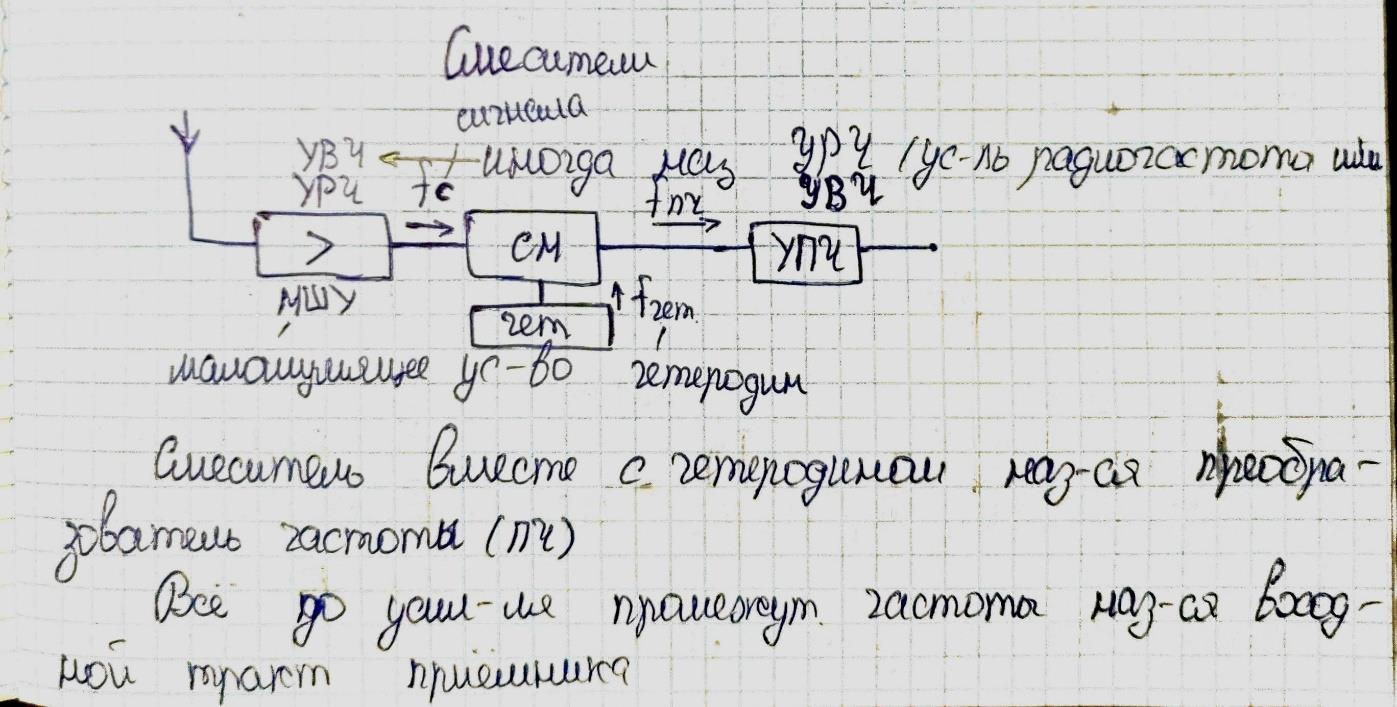 Смесители
сигнала
УВЧ иногда наз УРЧ (ус-ль радиочастота или
УРЧ fс fпч УВЧ
> СМ УПЧ
МШУ fгет.
гет
малошумящее ус-во гетеродин
Смеситель вместе с гетеродином наз-ся преобра-
зователь частоты (ПЧ)
Всё до усил-ля промежут. частоты наз-ся вход-
ной тракт приёмника